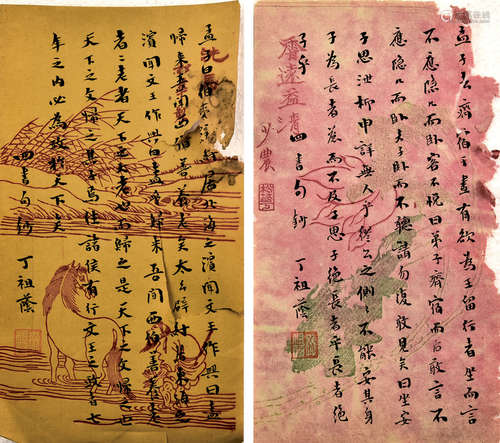 孟子去齊宿於晝有欲為王留行者坐而言
不應隱几而卧客不悅曰弟子齊宿而后敢言不
應隱几而卧夫子卧而不聽請勿復敢見矣曰坐
子思泄柳申詳無人乎繆公之側則不能安其身
子為長者慮而不及子思子絕長者乎長者絕
子乎
四書句鈔 丁祖蔭
孟子曰伯夷辟紂居北海之濱聞文王作興曰盍
歸來吾聞西伯善養老者太公辟紂居東海之
濱聞文王作興曰盍歸來吾聞西伯善養老
者二老者天下之大老也而歸之是天下之父歸之也
天下之父歸之其子焉往諸侯有行文王之政者七
年之內必為政於天下矣
四書句鈔 丁祖蔭